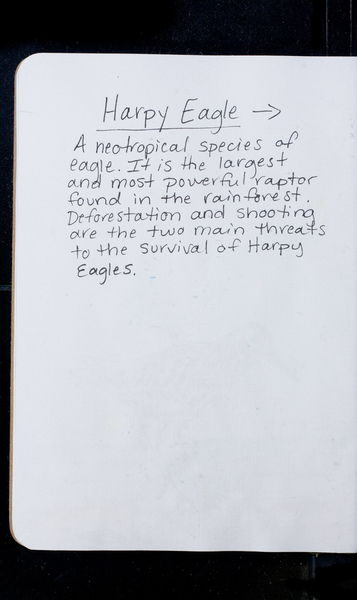 Harpy Eagle →
A neotropical species of
eagle. It is the largest
and most powerful raptor
found in the rainforest.
Deforestation and shooting
are the two main threats
to the survival of Harpy
Eagles.